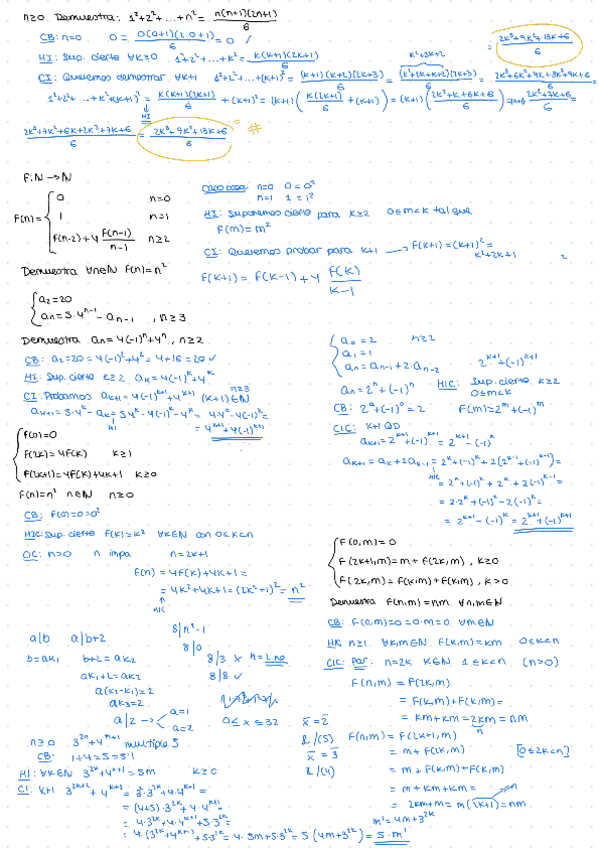 n≥0 Demuestra: 1²+2²+...+n² = n(n+1)(2n+1)/6
CB: n=0 0 = 0(0+1)(2·0+1)/6 = 0 ✓
HI: Sup. cierto ∀k≥0 1²+2²+...+k² = k(k+1)(2k+1)/6
CI: Queremos demostrar ∀k+1 1²+2²+...+(k+1)² = (k+1)(k+2)(2k+3)/6 = (k²+2k+k+2)(2k+3)/6 = 2k³+6k²+4k+3k²+9k+6/6
k²+3k+2
= 2k³+9k²+13k+6/6
1²+2²+...+k²+(k+1)² = k(k+1)(2k+1)/6 + (k+1)² = (k+1)(k(2k+1)/6 + (k+1)) = (k+1)(2k²+k+6k+6/6) = 2k²+7k+6/6 =
HI
2k³+7k²+6k+2k²+7k+6/6 = 2k³+9k²+13k+6/6 = #
F: N → N
F(n) = { 0 n=0
1 n=1
F(n-2)+4 F(n-1)/n-1 n≥2
Demuestra ∀n∈N F(n)=n²
Caso base: n=0 0=0²
n=1 1=1²
HI: Suponemos cierto para k≥2 0≤m<k tal que
F(m)=m²
CI: Queremos probar para k+1 → F(k+1)=(k+1)²=
k²+2k+1
F(k+1) = F(k-1)+4 F(k)/k-1
{ a₂=20
aₙ=3·4ⁿ⁻¹-aₙ₋₁ , n≥3
Demuestra aₙ=4(-1)ⁿ+4ⁿ, n≥2
CB: a₂=20=4(-1)²+4²=4+16=20 ✓
HI: Sup. cierto k≥2 aₖ=4(-1)ᵏ+4ᵏ
CI: Probamos aₖ₊₁=4(-1)ᵏ⁺¹+4ᵏ⁺¹ (k+1)∈N
n≥3
aₖ₊₁=3·4ᵏ-aₖ=3·4ᵏ-4(-1)ᵏ-4ᵏ=4·4ᵏ-4(-1)ᵏ=
HI
= 4ᵏ⁺¹+4(-1)ᵏ⁺¹
{ F(0)=0
F(2k)=4F(k) k≥1
F(2k+1)=4F(k)+4k+1 k≥0
F(n)=n² n∈N n≥0
CB: F(0)=0=0²
HIC: Sup. cierto F(k)=k² ∀k∈N con 0≤k<n
CIC: n>0 n impar n=2k+1
F(n)=4F(k)+4k+1=
= 4k²+4k+1=(2k+1)²=n²
HIC
{ a₀=2 n≥2
a₁=1
aₙ=aₙ₋₁+2·aₙ₋₂
2ᵏ⁺¹+(-1)ᵏ⁺¹
aₙ=2ⁿ+(-1)ⁿ HIC: Sup. cierto k≥2
0≤m<k
CB: 2⁰+(-1)⁰=2 F(m)=2ᵐ+(-1)ᵐ
CIC: k+1 QD
aₖ₊₁=2ᵏ⁺¹+(-1)ᵏ⁺¹=2ᵏ⁺¹-(-1)ᵏ
aₖ₊₁=aₖ+2aₖ₋₁=2ᵏ+(-1)ᵏ+2(2ᵏ⁻¹+(-1)ᵏ⁻¹)=
HIC
= 2ᵏ+(-1)ᵏ+2ᵏ+2(-1)ᵏ⁻¹=
= 2·2ᵏ+(-1)ᵏ-2(-1)ᵏ=
= 2ᵏ⁺¹-(-1)ᵏ=2ᵏ⁺¹+(-1)ᵏ⁺¹
{ F(0,m)=0
F(2k+1,m)=m+F(2k,m), k≥0
F(2k,m)=F(k,m)+F(k,m), k>0
Demuestra F(n,m)=nm ∀n,m∈N
CB: F(0,m)=0=0·m=0 ∀m∈N
HI: n≥1 ∀k,m∈N F(k,m)=km 0≤k<n
CIC: Par: n=2k k∈N 1≤k<n (n>0)
F(n,m)=F(2k,m)
= F(k,m)+F(k,m)=
= km+km=2km=nm
n
F(n,m)=F(2k+1,m)
= m+F(2k,m) [0≤2k<n]
= m+F(k,m)+F(k,m)
= m+km+km=
= 2km+m=m(2k+1)=nm
a|b a|b+2
b=ak₁ b+2=ak₂
ak₁+2=ak₂
a(k₂-k₁)=2
ak₃=2
a|2 → a=1
a=2
8|n²-1
8|0
8|3 x n=2 no
8|8 ✓
a≤x≤32
x̄=2̄
R/(5)
x̄=3̄
R/(4)
n≥0 3²ⁿ+4ⁿ⁺¹ multiplo 5
CB: 1+4=5=5·1
HI: ∀k∈N 3²ᵏ+4ᵏ⁺¹=5m k≥0
CI: k+1 3²ᵏ⁺²+4ᵏ⁺²=3²·3²ᵏ+4·4ᵏ⁺¹=
= (4+5)·3²ᵏ+4·4ᵏ⁺¹
= 4·3²ᵏ+4·4ᵏ⁺¹+5·3²ᵏ=
= 4·(3²ᵏ+4ᵏ⁺¹)+5·3²ᵏ=4·5m+5·3²ᵏ=5(4m+3²ᵏ)=5·m'
m'=4m+3²ᵏ